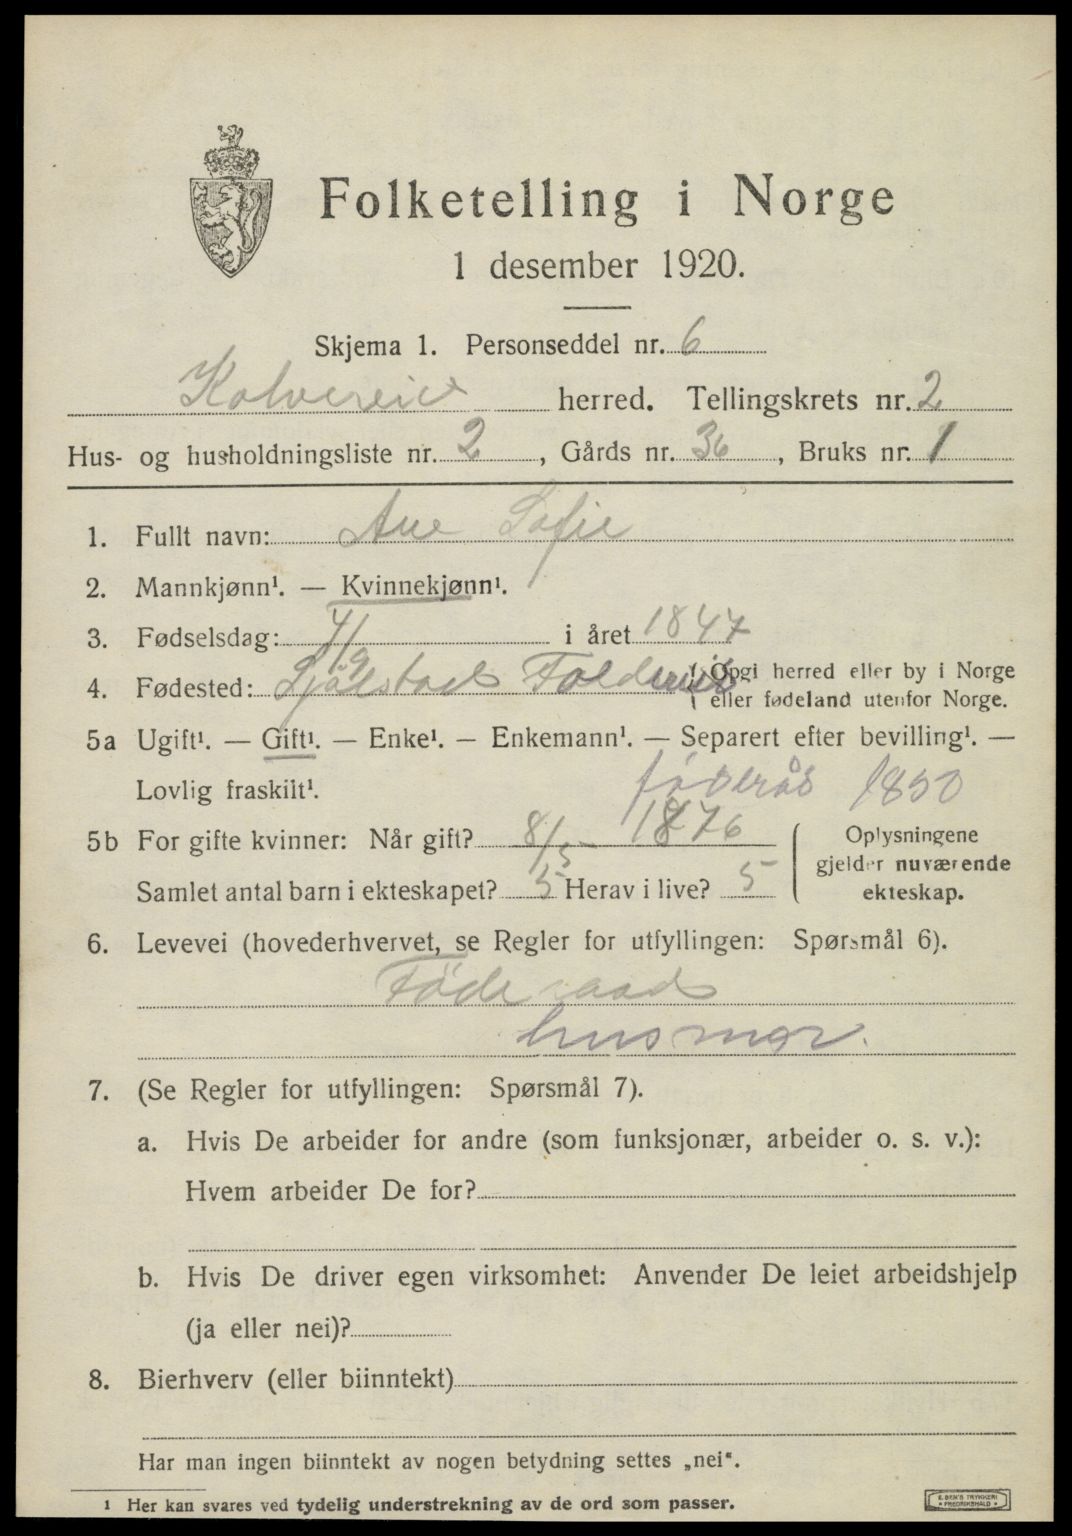 Folketelling i Norge
1 desember 1920.
Skjema 1. Personseddel nr. 6
Kolvereid herred. Tellingskrets nr. 2
Hus- og husholdningsliste nr. 2, Gårds nr. 36, Bruks nr. 1
1. Fullt navn: Ane Sofie
2. Mannkjønn¹. — Kvinnekjønn¹.
3. Fødselsdag: 4/9 i året 1847
4. Fødested: Foldereid
(Opgi herred eller by i Norge
eller fødeland utenfor Norge.
5a Ugift¹. — Gift¹. — Enke¹. — Enkemann¹. — Separert efter bevilling¹. —
Lovlig fraskilt¹. föderås 1850
5b For gifte kvinner: Når gift? 8/5 1876
Samlet antal barn i ekteskapet? 5 Herav i live? 5
Oplysningene
gjelder nuværende
ekteskap.
6. Levevei (hovederhvervet, se Regler for utfyllingen: Spørsmål 6).
Föderaads
husmor.
7. (Se Regler for utfyllingen: Spørsmål 7).
a. Hvis De arbeider for andre (som funksjonær, arbeider o. s. v.):
Hvem arbeider De for?
b. Hvis De driver egen virksomhet: Anvender De leiet arbeidshjelp
(ja eller nei)?
8. Bierhverv (eller biinntekt)
Har man ingen biinntekt av nogen betydning settes „nei".
1 Her kan svares ved tydelig understrekning av de ord som passer.
E. SEM'S TRYKKERI
• FREDRIKSHALD •